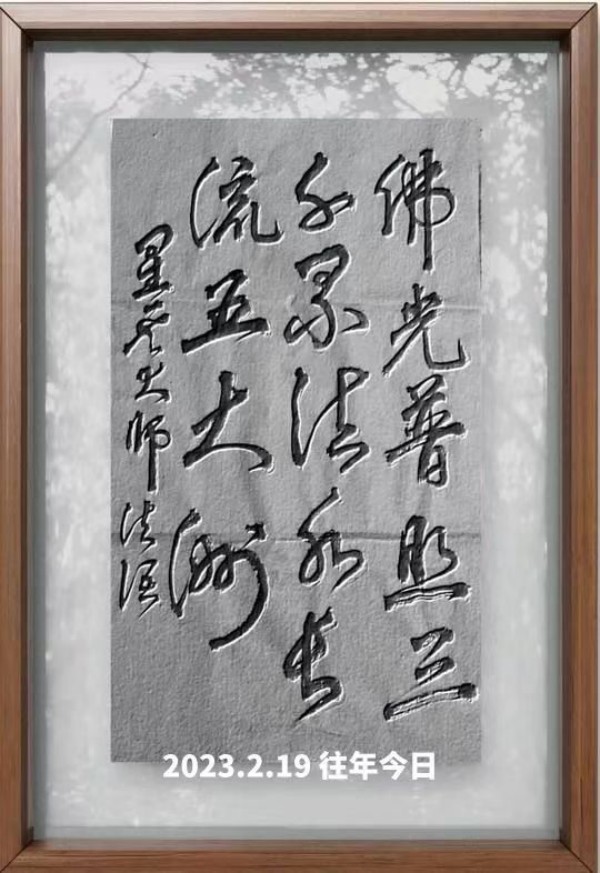 佛光普照三
千界法水长
流五大洲
星云大师法语
2023.2.19 往年今日